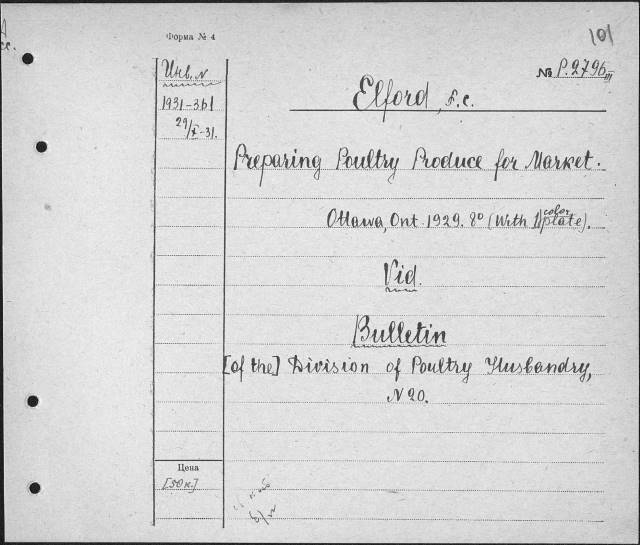 Форма № 4
101
Инв. N
№ P.2796 III
Elford, F.C.
1931-361
29/X-31.
Preparing Poultry Produce for Market.
Ottawa, Ont. 1929. 8° (With 1 color plate).
Vid.
Bulletin
[of the] Division of Poultry Husbandry,
N 20.
Цена
[50к.]